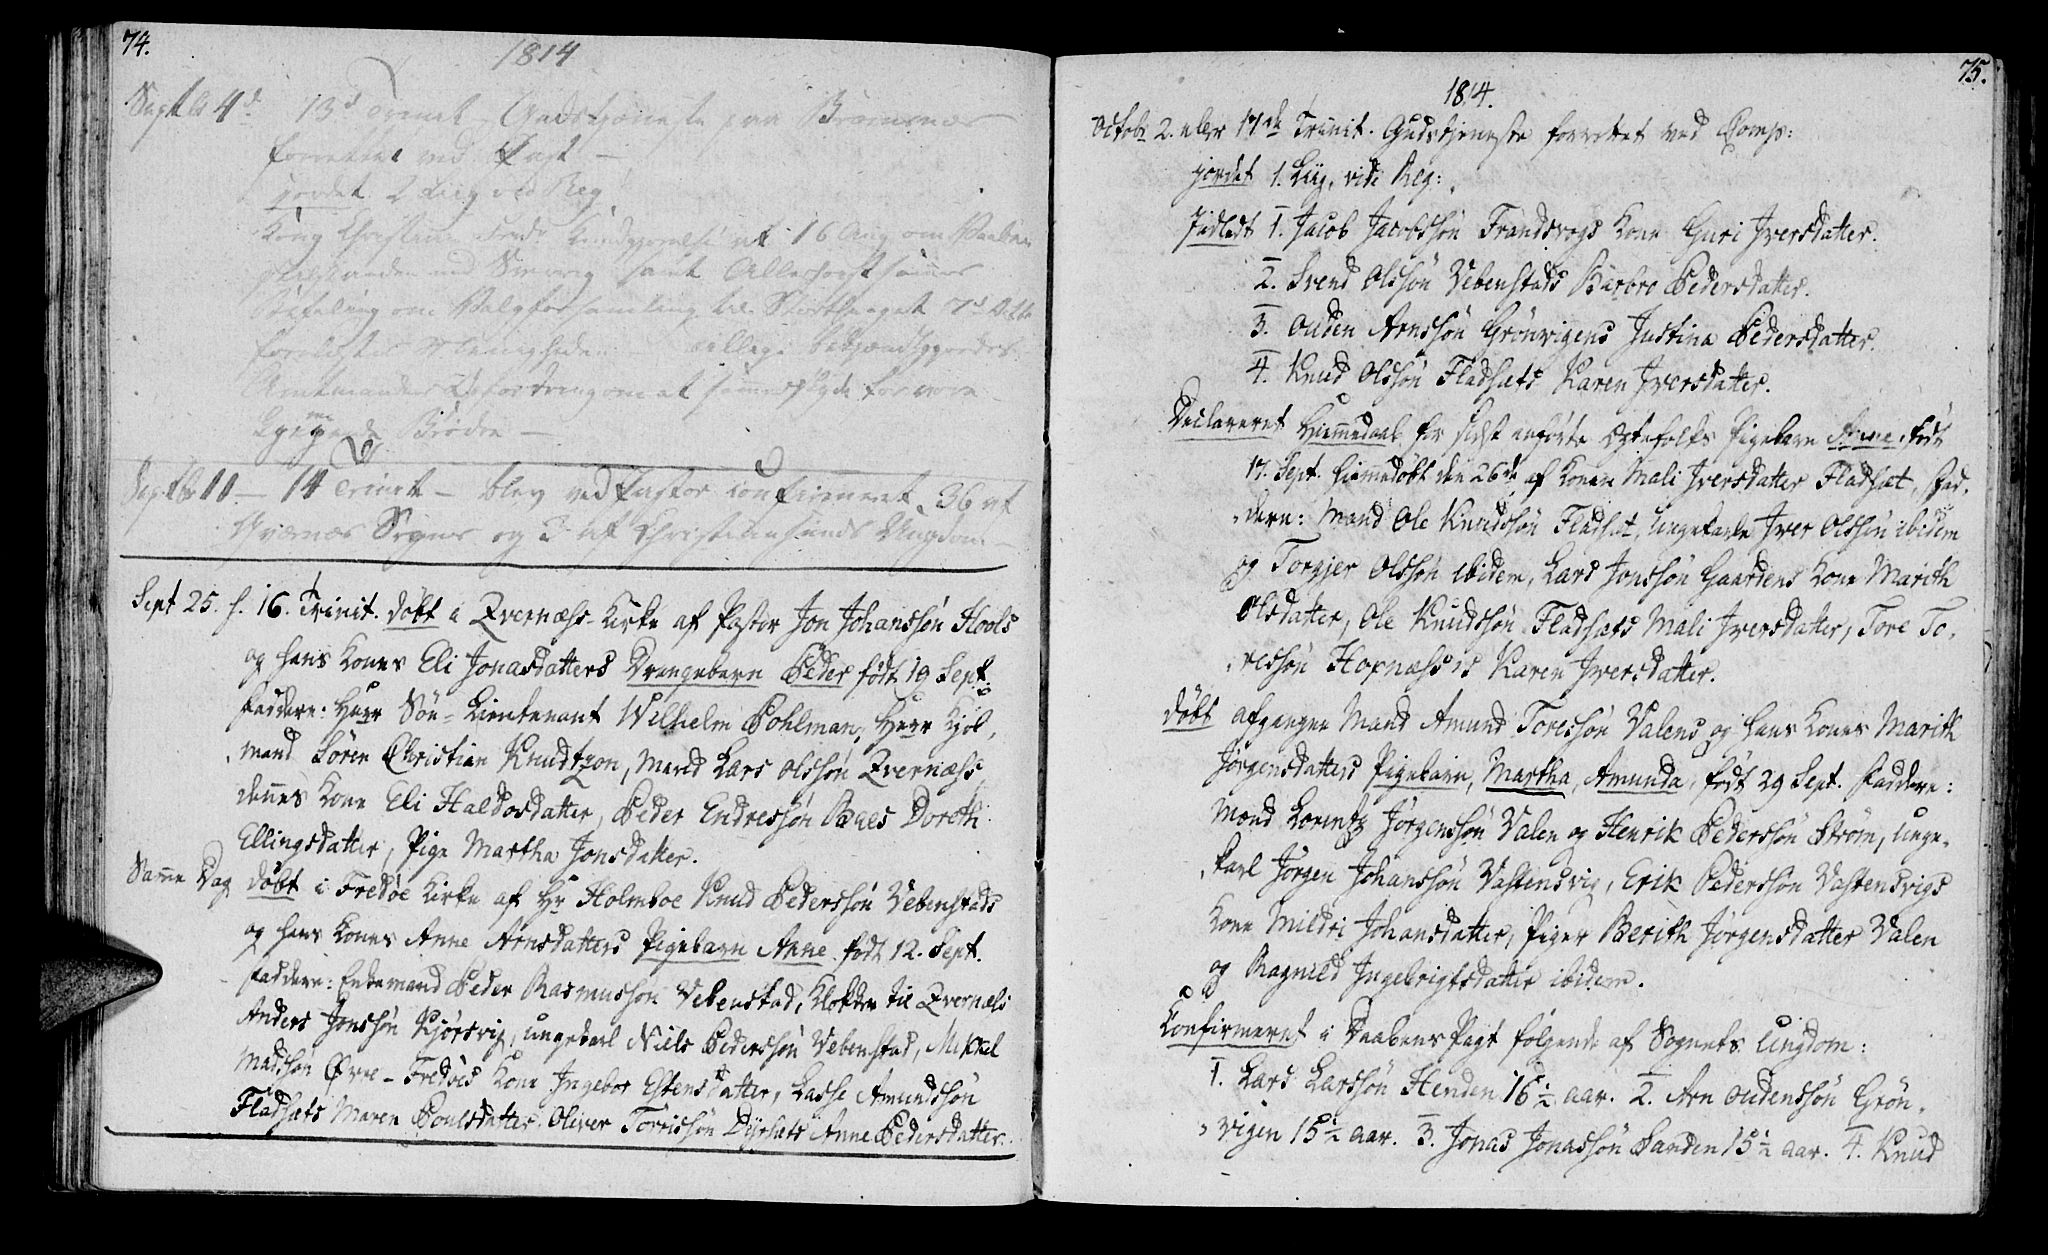 74.
1814
Septbr 4de 13de Trinit. Gudstjeneste paa Bremsnæs
forrettet ved Past. –
jordet 2 Liig vid Reg
Kong Christian Fred. Kundgjørelse af 16 Aug om Vaaben
stilstanden med Sverrig samt Allerhøistsammes
Befaling om Valgforsamling til Storthinget 7de Octb
forelæstes Menigheden – tillige bekjendtgjordes
Amtmandens Opfordring om at for vore
Brødre –
Septbr 11 – 14 Trinit – blev ved Pastor confirmeret 36 af
Qværnæs Sogns og 3 af Christiansunds Ungdom –
Sept 25. f. 16. Trinit. døbt i Qvernæss-Kirke af Pastor Jon Johanssøn Hools
og hans Kones Eli Jonasdatters Drengebarn Peder født 19 Sept:
Faddere: Herr Søe-Lieutenant Wilhelm Pohlman, Herr Kjøb,
,mand Søren Christian Knudtzon, Mand Lars Olssøn Qvernæss,
dennes Kone Eli Haldosdatter, Peder Endressøn Baes Doreth
Ellingsdatter, Pige Martha Jonsdatter.
Samme Dag døbt i Fredøe Kirke af Hr Holmboe Knud Pederssøn Vebenstads
og hans Kones Anne Arnsdatters Pigebarn Anne født 12. Sept.
Faddere: Enkemand Peder Rasmussøn Vebenstad, Klokker til Qvernæss
Anders Jonssøn Kjørsvig, ungekarl Niels Pederssøn Vebenstad, Mikkel
Madssøn Øvre-Fredøes Kone Ingebor Estensdatter, Lasse Amundssøn
Fladsæts Maren Poulsdatter. Oliver Torrissøn Dyrsæts Anne Pedersdatter.
75.
1814.
Octobr 2. eller 17de Trinit. Gudstjeneste forrettet ved Comp:
jordet 1. Liig, vide Reg:
Indledt 1. Jacob Jacobssøn Frandsvogs Kone Guri Iversdatter.
2. Svend Olssøn Vebenstads Barbro Pedersdatter.
3. Ouden Arnssøn Grønvigens Justina Pedersdatter.
4. Knud Olssøn Fladsæts Karen Iversdatter.
Declareret Hiemmedaab for sidst anførte Ægtefolks Pigebarn Anne, født
17. Sept. hiemmedøbt den 26de af Konen Mali Iversdatter Fladsæt, Fad,
,dere: Mand Ole Knudssøn Fladsæt, ungekarle Iver Olssøn ibidem
og Torgjer Olssøn ibidem, Lars Jonssøn Gaardens Kone Marith
Olsdatter, Ole Knudssøn Fladsæts Mali Iversdatter, Tore To,
,ressøn Hopnæss's Karen Iversdatter.
Døbt afgangne Mand Amund Toressøn Valens og hans Kones Marith
Jørgensdatters Pigebarn, Martha, Amunda, født 29 Sept. Faddere:
Mænd Lorentz Jørgenssøn Valen og Henrik Pederssøn Strøm, Unge,
,karl Jørgen Johanssøn Vastensvig, Erik Pederssøn Vastensvigs
Kone Mildri Johansdatter, Piger Berith Jørgensdatter Valen
og Ragnild Ingebrigtsdatter ibidem.
Confirmeret i Daabens Pagt følgende af Sognets Ungdom:
1. Lars Larssøn Henden 16 1/2 aar. 2. Arn Oudenssøn Grøn,
,vigen 15 1/2 aar. 3. Jonas Jonassøn Sanden 15 1/2 aar. 4. Knud